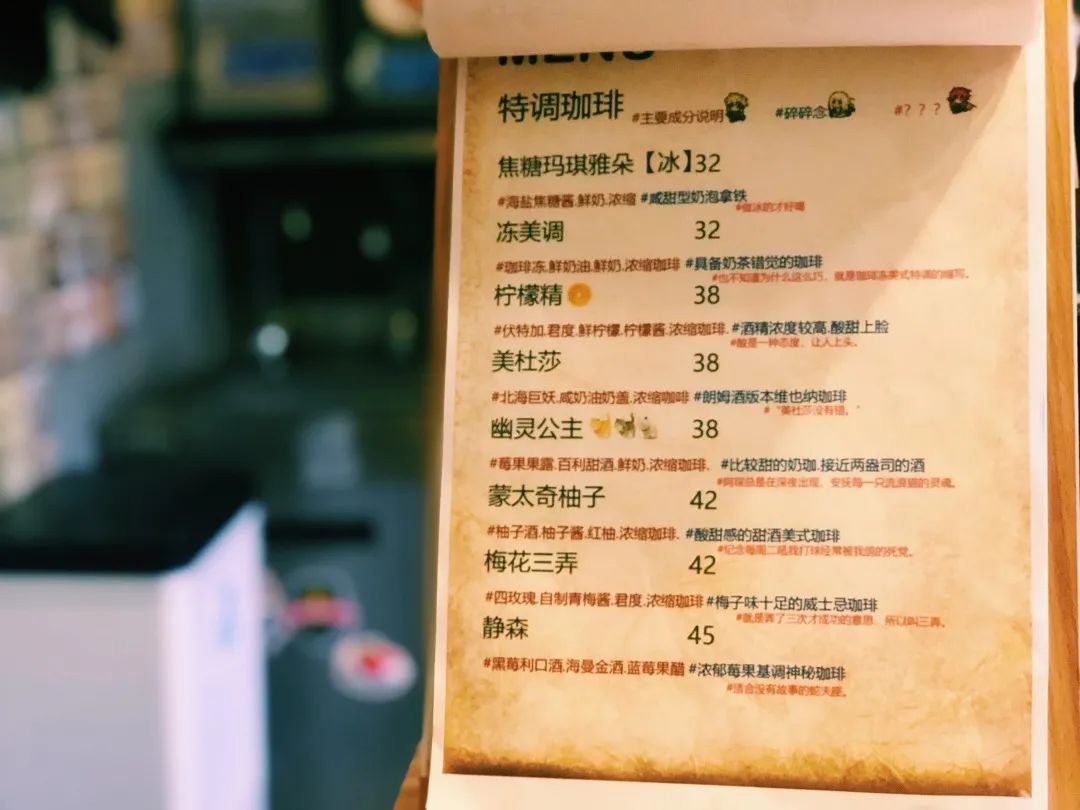 MENU
特调咖啡 #主要成分说明 #碎碎念 #？？？
焦糖玛琪雅朵【冰】32
#海盐焦糖酱.鲜奶.浓缩 #咸甜型奶泡拿铁
#做冰的才好喝
冻美调 32
#咖啡冻.鲜奶油.鲜奶.浓缩咖啡 #具备奶茶错觉的咖啡
#也不知道为什么这么巧，就是咖啡冻美式特调的缩写。
柠檬精 38
#伏特加.君度.鲜柠檬.柠檬酱.浓缩咖啡. #酒精浓度较高.酸甜上脸
#酸是一种态度，让人上头。
美杜莎 38
#北海巨妖.咸奶油奶盖.浓缩咖啡 #朗姆酒版本维也纳咖啡
#“美杜莎没有错。”
幽灵公主 38
#莓果果露.百利甜酒.鲜奶.浓缩咖啡. #比较甜的奶咖.接近两盎司的酒
#阿琛总是在深夜出现，安抚每一只流浪猫的灵魂。
蒙太奇柚子 42
#柚子酒.柚子酱.红柚.浓缩咖啡. #酸甜感的甜酒美式咖啡
#纪念每周二喊我打球经常被我鸽的死党。
梅花三弄 42
#四玫瑰.自制青梅酱.君度.浓缩咖啡 #梅子味十足的威士忌咖啡
#就是弄了三次才成功的意思，所以叫三弄。
静森 45
#黑莓利口酒.海曼金酒.蓝莓果醋 #浓郁莓果基调神秘咖啡
#适合没有故事的蛇夫座。